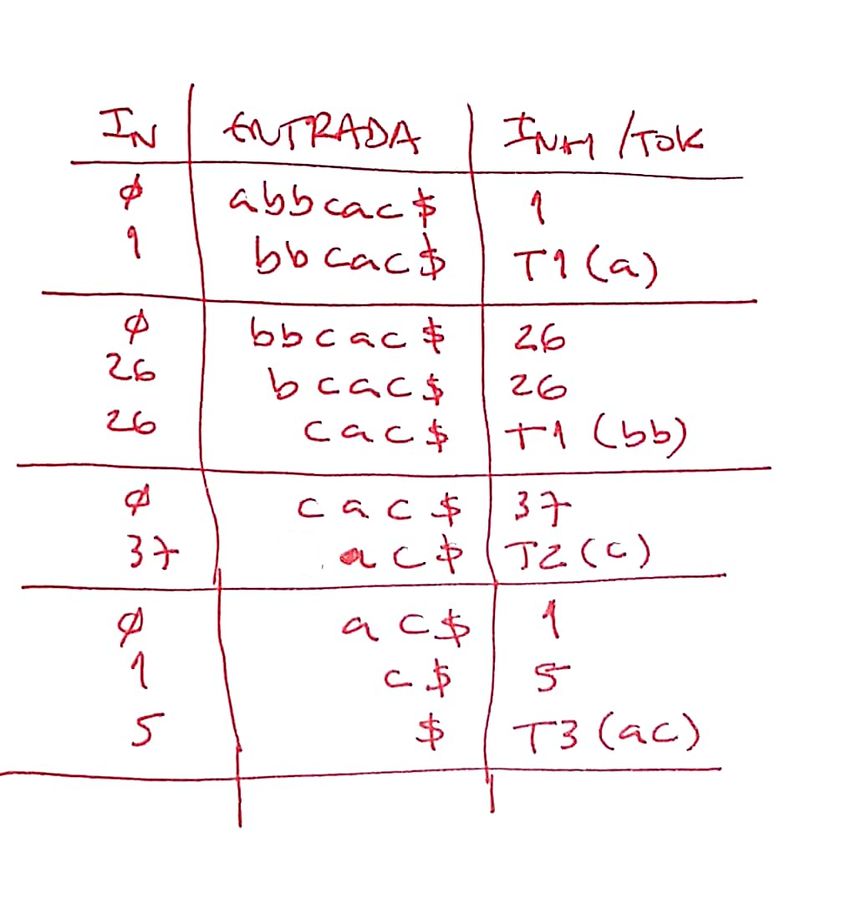 IN ENTRADA IN+1 /TOK
0 abbcac$ 1
1 bbcac$ T1(a)
0 bbcac$ 26
26 bcac$ 26
26 cac$ T1 (bb)
0 cac$ 37
37 ac$ T2(c)
0 ac$ 1
1 c$ 5
5 $ T3(ac)